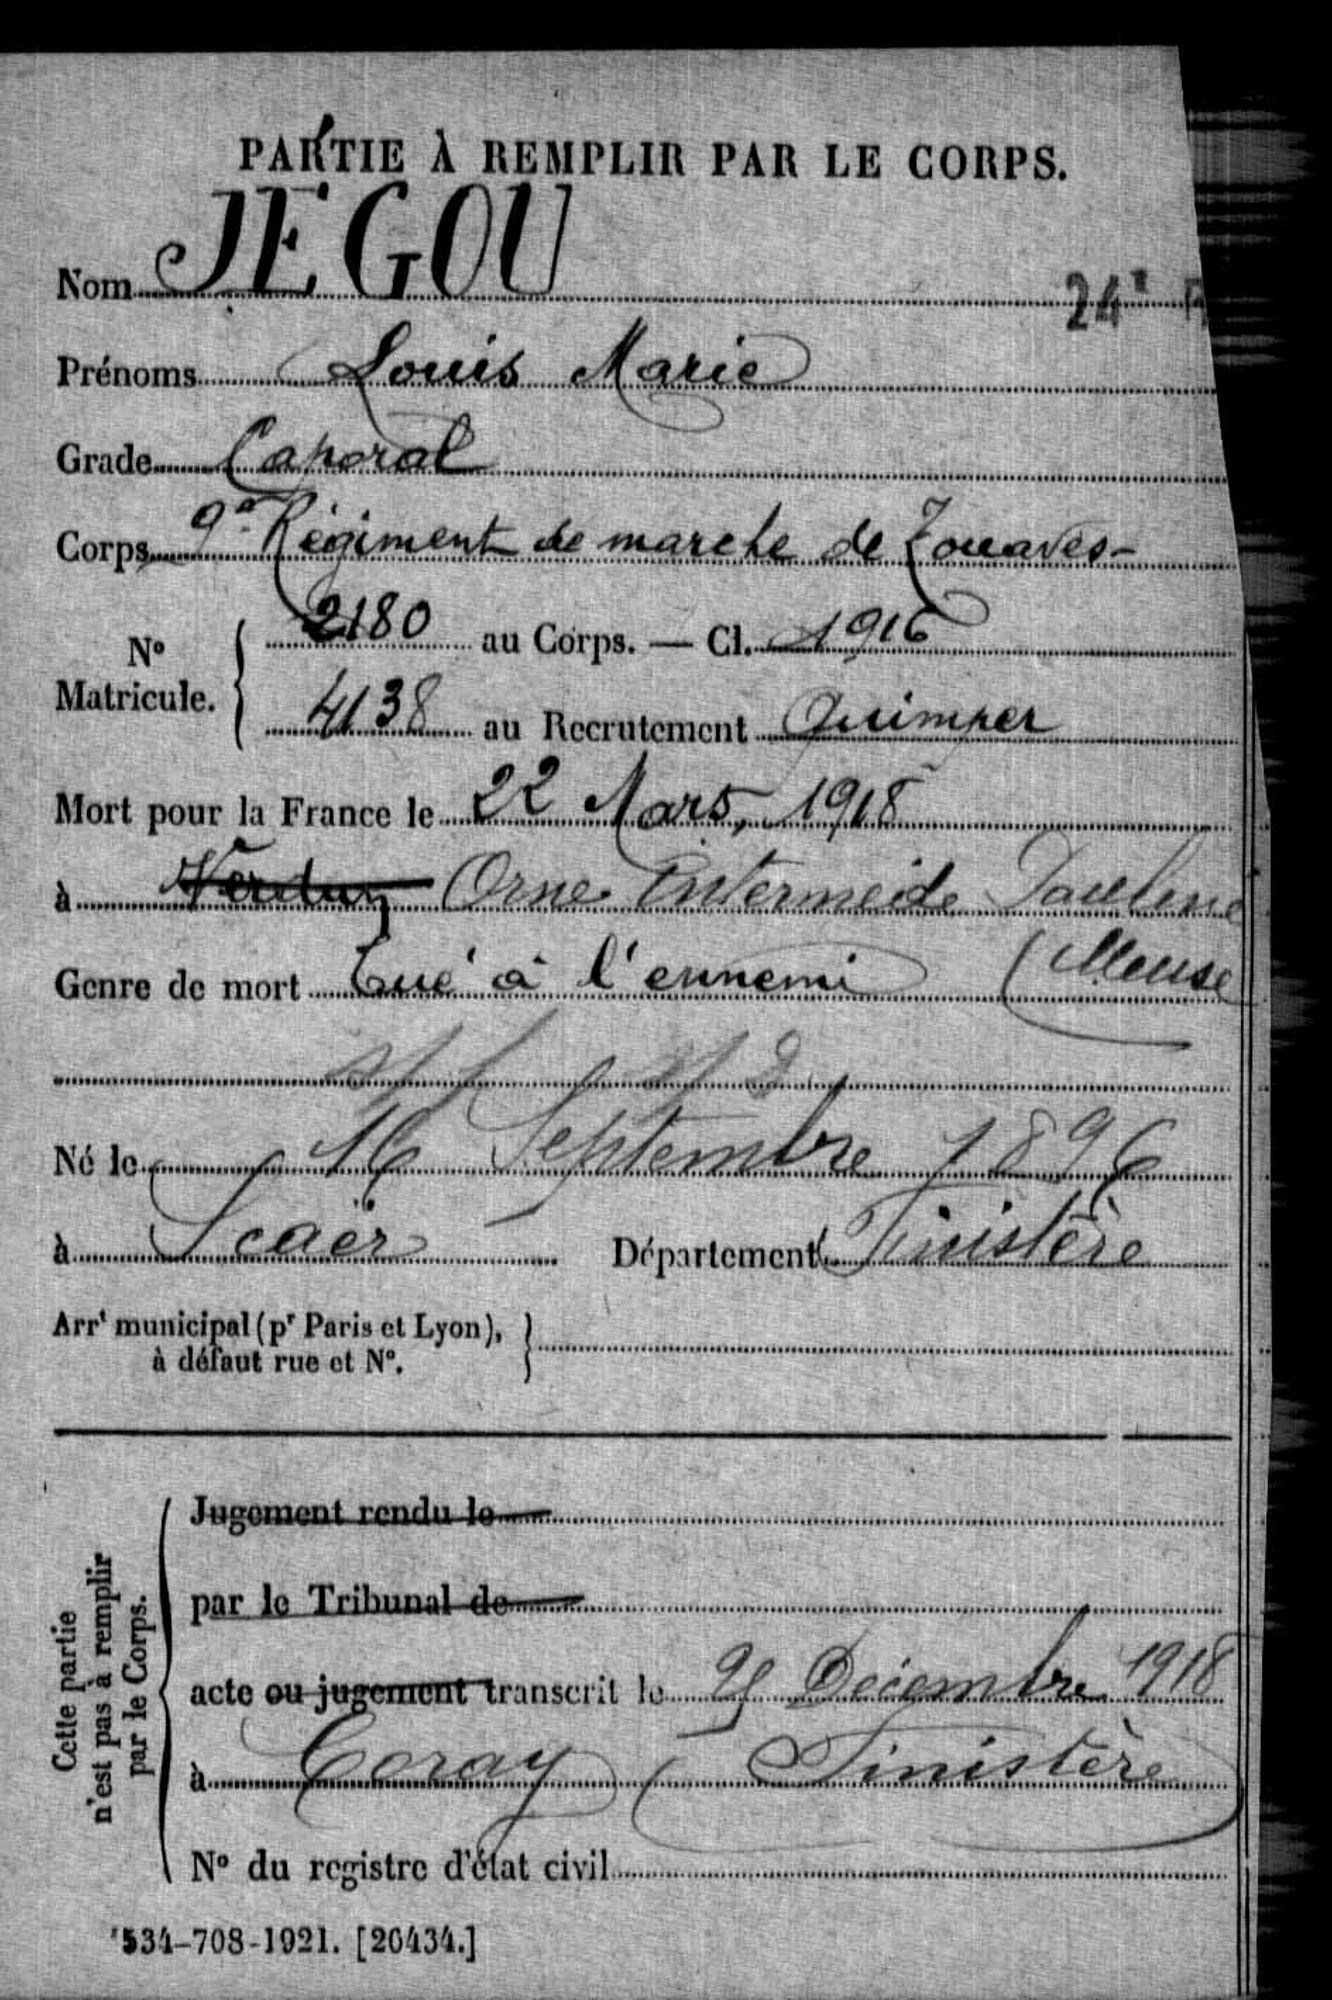 PARTIE À REMPLIR PAR LE CORPS.
Nom JÉGOU
24e
Prénoms Louis Marie
Grade Caporal
Corps 9e Régiment de marche de Zouaves
No Matricule. { 2180 au Corps. — Cl. 1916
4138 au Recrutement Quimper
Mort pour la France le 22 Mars, 1918
à Verdun Orne Intermeide Pauline
(Meuse
Genre de mort Tué à l'ennemi
Né le 16 Septembre 1896
à Scaër Département Finistère
Arrt municipal (pr Paris et Lyon), à défaut rue et No.
Cette partie n'est pas à remplir par le Corps.
Jugement rendu le
par le Tribunal de
acte ou jugement transcrit le Décembre 1918
à Coray (Finistère)
No du registre d'état civil
534-708-1921. [26434.]